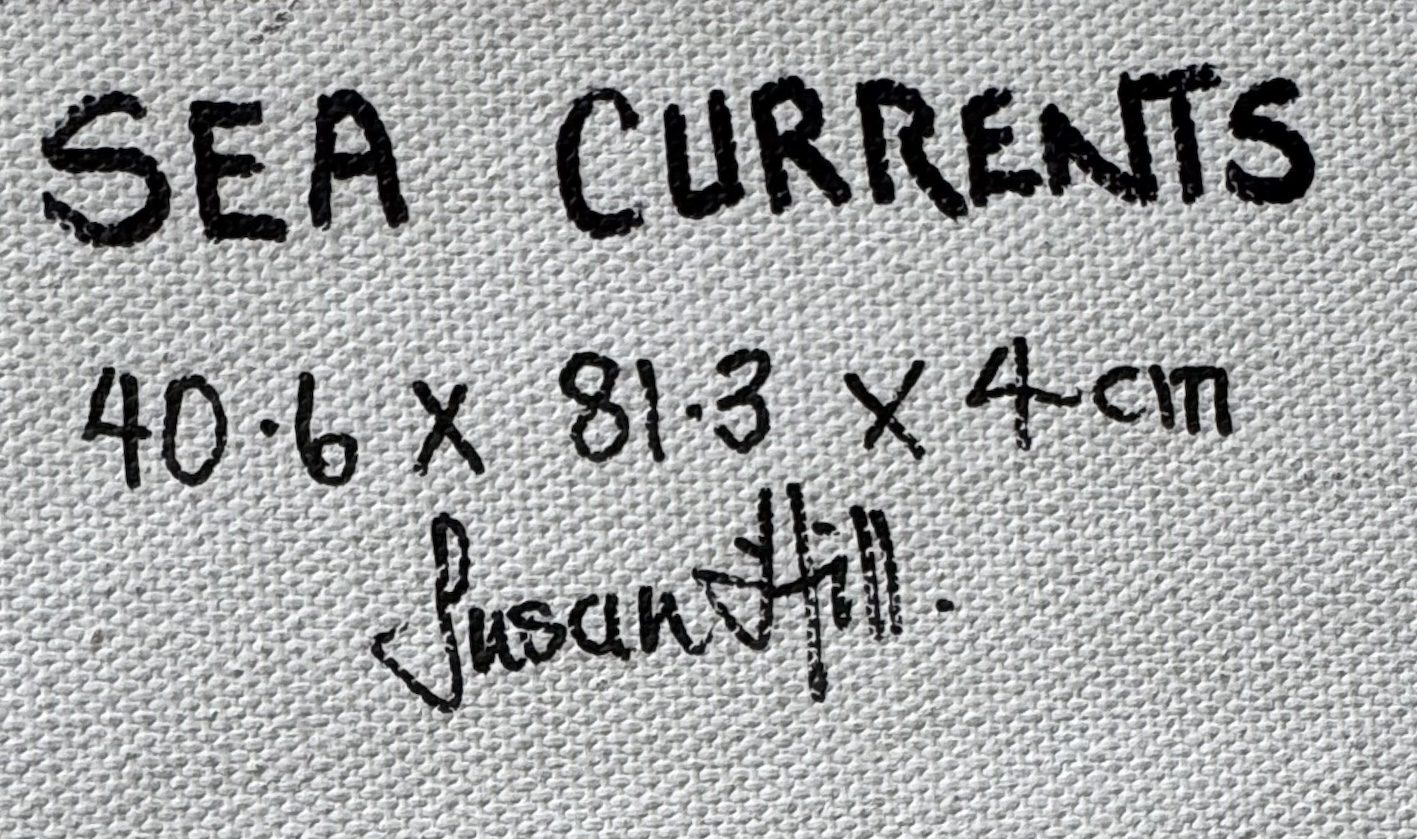 SEA CURRENTS
40.6 x 81.3 x 4 cm
Susan Hill.